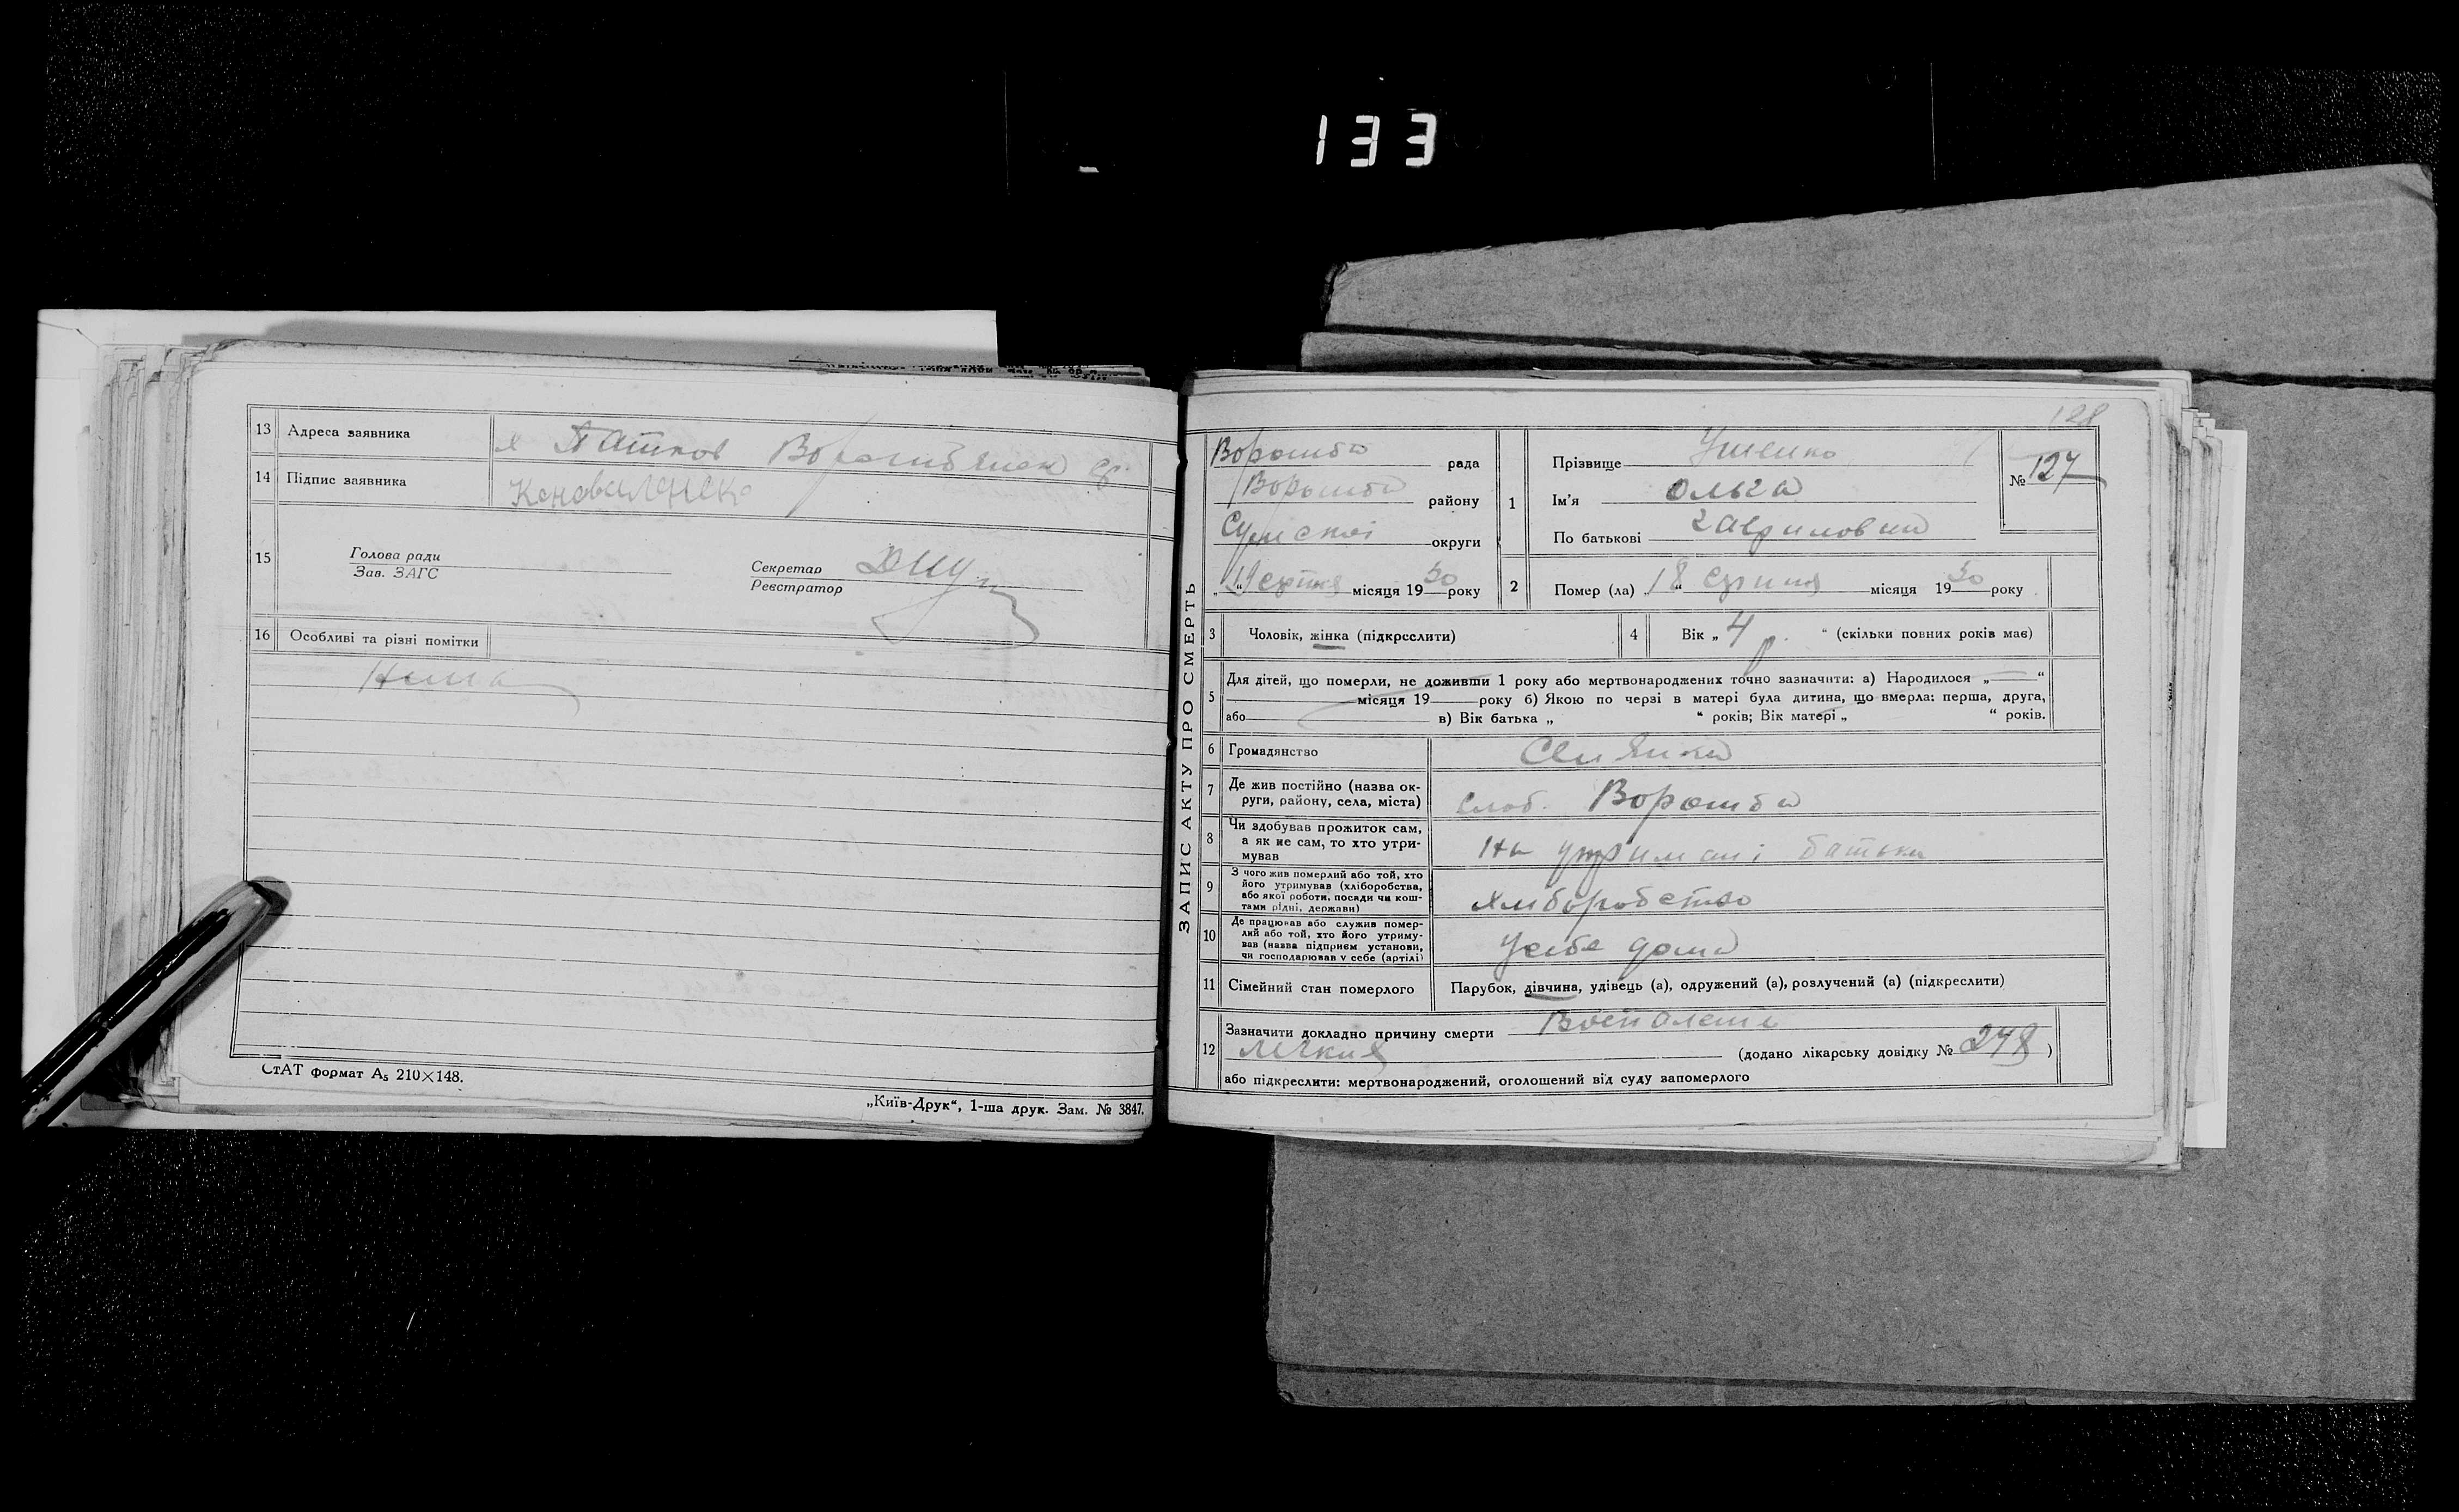 133
13 Адреса заявника
14 Підпис заявника
15 Голова ради
Зав. ЗАГС
Секретар
Реєстратор
16 Особливі та різні помітки
Нима
СтАТ формат А₅ 210×148.
„Київ-Друк“, 1-ша друк. Зам. № 3847.
128
ЗАПИС АКТУ ПРО СМЕРТЬ
Ворожба рада
Ворожба району
Сумскої округи
„19“ серпня місяця 1930 року
1 Прізвище
Ім'я Ольга
По батькові Гавриловна
№ 127
2 Помер (ла) „18“ серпня місяця 1930 року
3 Чоловік, жінка (підкреслити)
4 Вік „4 р.“ (скільки повних років має)
5 Для дітей, що померли, не доживши 1 року або мертвонароджених точно зазначити: а) Народилося „ “
місяця 19 року б) Якою по черзі в матері була дитина, що вмерла: перша, друга,
або в) Вік батька „ “ років; Вік матері „ “ років.
6 Громадянство
7 Де жив постійно (назва ок-
руги, району, села, міста) слоб. Ворожба
8 Чи здобував прожиток сам,
а як не сам, то хто утри-
мував На утримані батька
9 З чого жив померлий або той, хто
його утримував (хліборобства,
або якої роботи, посади чи кош-
тами рідні, держави) хліборобство
10 Де працював або служив помер-
лий або той, хто його утриму-
вав (назва підприєм установи,
чи господарював у себе (артілі) У себе дома
11 Сімейний стан померлого Парубок, дівчина, удівець (а), одружений (а), розлучений (а) (підкреслити)
12 Зазначити докладно причину смерти Воспалени
легких (додано лікарську довідку № 248 )
або підкреслити: мертвонароджений, оголошений від суду запомерлого